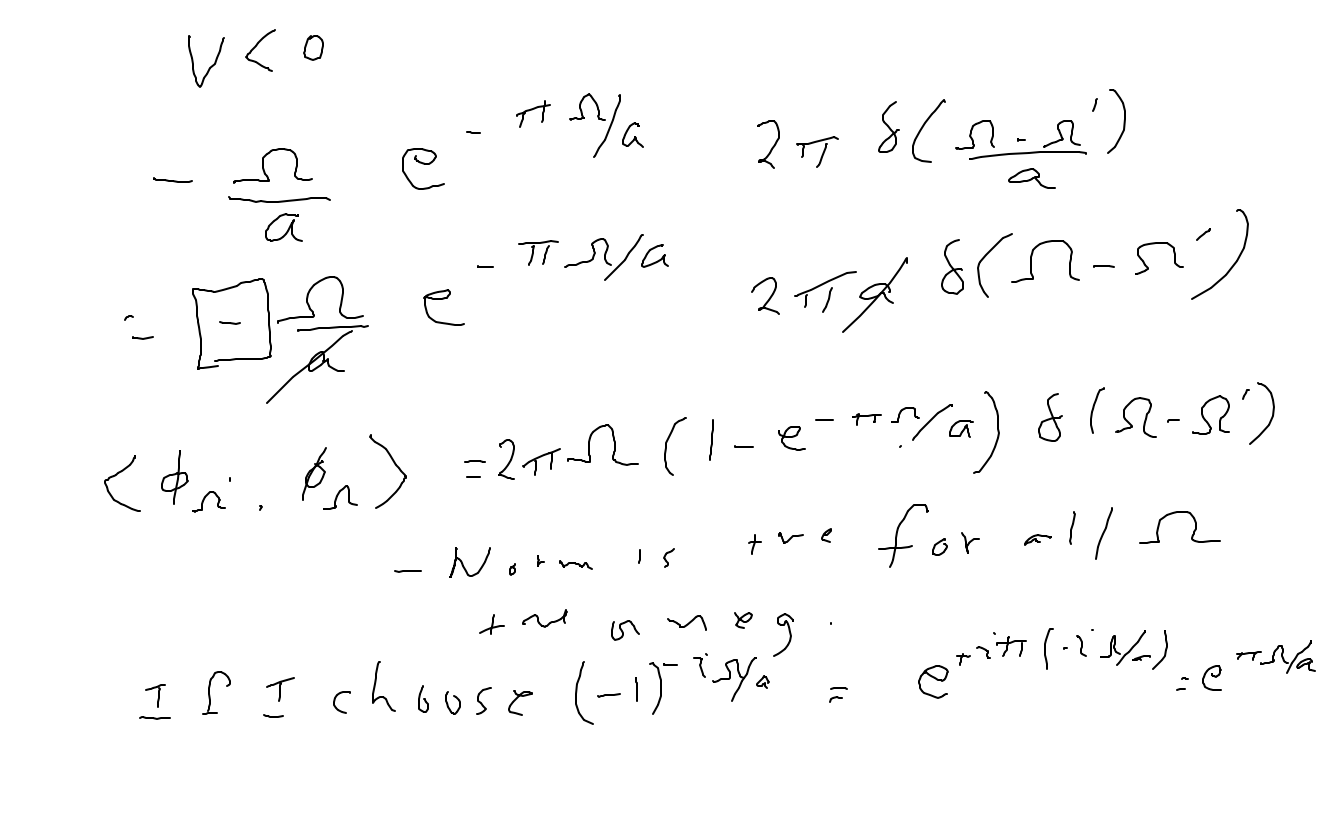 V < 0
- Ω/a e^{-πΩ/a} 2π δ((Ω-Ω')/a)
= [-] Ω/a e^{-πΩ/a} 2πa δ(Ω-Ω')
<ϕ_Ω', ϕ_Ω> = 2πΩ (1 - e^{-πΩ/a}) δ(Ω-Ω')
- Norm is +ve for all Ω
+ve or neg.
If I choose (-1)^{-iΩ/a} = e^{+iπ(-iΩ/a)} = e^{πΩ/a}